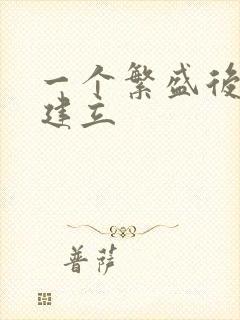 一个繁盛後
建立
菩萨